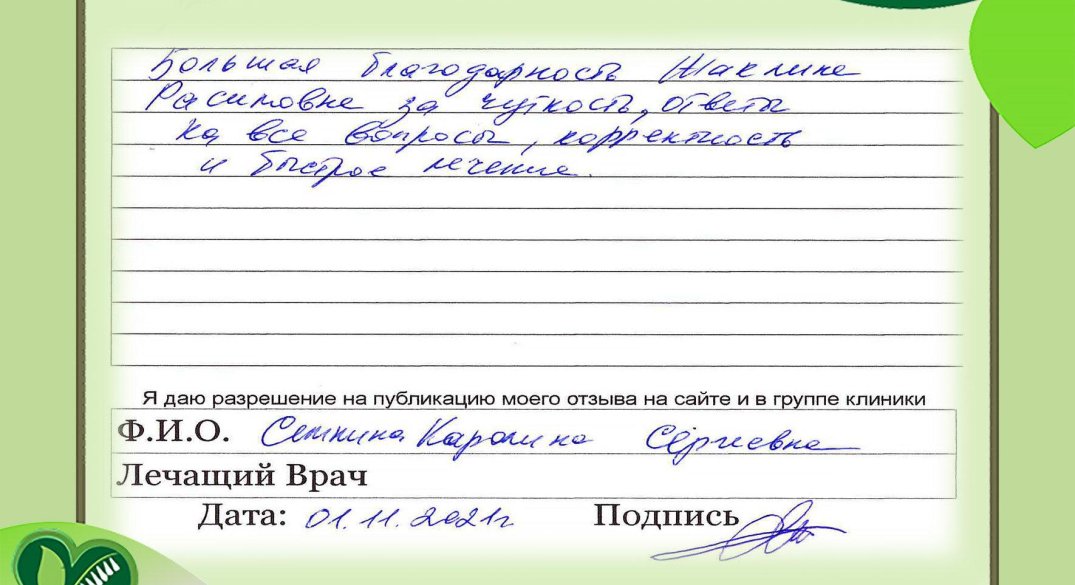 Большая благодарность Жаклине
Расимовне за чуткость, ответы
на все вопросы, корректность
и быстрое лечение.
Я даю разрешение на публикацию моего отзыва на сайте и в группе клиники
Ф.И.О. Каролина Сергеевна
Лечащий Врач
Дата: 01.11.2021г. Подпись